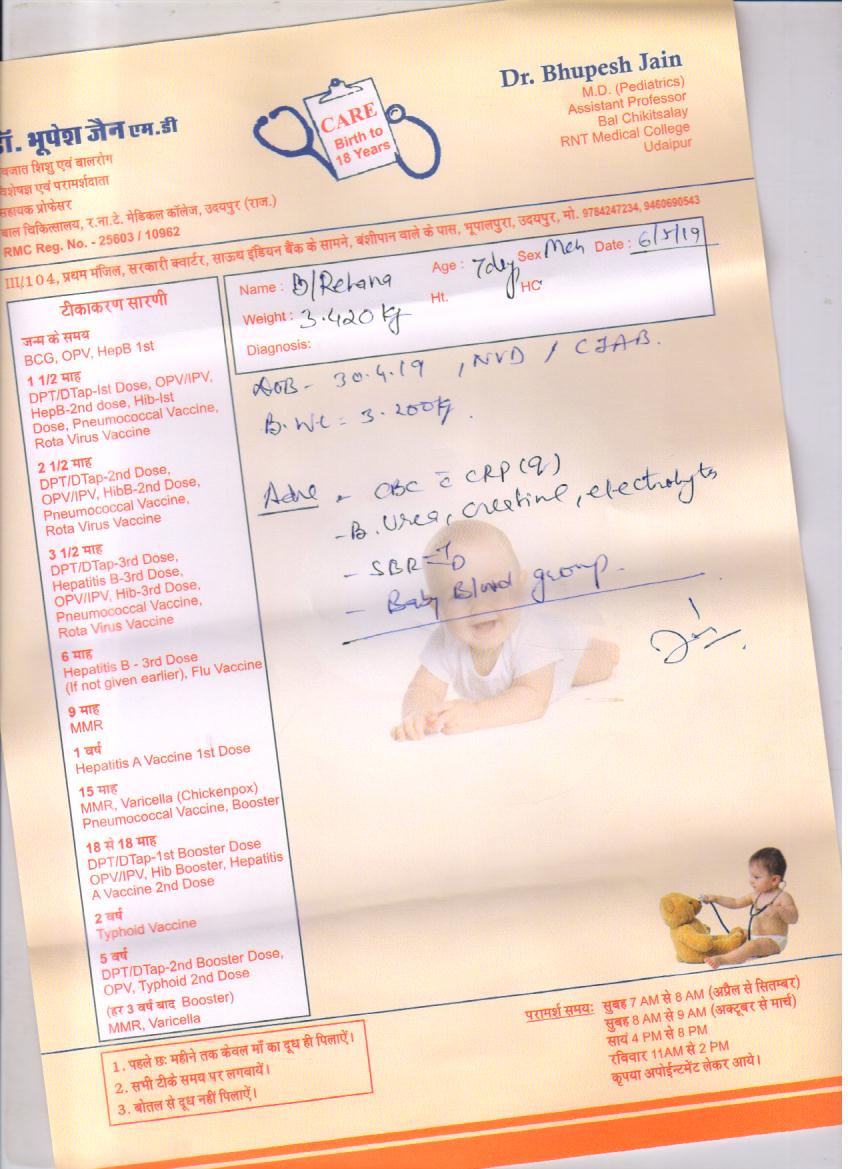 Dr. Bhupesh Jain
M.D. (Pediatrics)
Assistant Professor
Bal Chikitsalay
RNT Medical College
Udaipur
CARE
Birth to
18 Years
डॉ. भूपेश जैन एम.डी
वजात शिशु एवं बालरोग
वेशेषज्ञ एवं परामर्शदाता
सहायक प्रोफेसर
बाल चिकित्सालय, र.ना.टे. मेडिकल कॉलेज, उदयपुर (राज.)
RMC Reg. No. - 25603 / 10962
III/104, प्रथम मंजिल, सरकारी क्वार्टर, साऊथ इंडियन बैंक के सामने, बंशीपान वाले के पास, भूपालपुरा, उदयपुर, मो. 9784247234, 9460690543
Name : B/Rehana Age : 7day Sex Meh Date : 6/5/19
Weight : 3.420 kg Ht. HC
Diagnosis:
DOB - 30.4.19, NVD / CIAB.
B. Wt = 3.200 kg.
Adve - CBC c̄ CRP (q)
- B. Urea, Creatine, electrolyts
- SBR
- Baby Blood group.
टीकाकरण सारणी
जन्म के समय
BCG, OPV, HepB 1st
1 1/2 माह
DPT/DTap-Ist Dose, OPV/IPV,
HepB-2nd dose, Hib-Ist
Dose, Pneumococcal Vaccine,
Rota Virus Vaccine
2 1/2 माह
DPT/DTap-2nd Dose,
OPV/IPV, HibB-2nd Dose,
Pneumococcal Vaccine,
Rota Virus Vaccine
3 1/2 माह
DPT/DTap-3rd Dose,
Hepatitis B-3rd Dose,
OPV/IPV, Hib-3rd Dose,
Pneumococcal Vaccine,
Rota Virus Vaccine
6 माह
Hepatitis B - 3rd Dose
(If not given earlier), Flu Vaccine
9 माह
MMR
1 वर्ष
Hepatitis A Vaccine 1st Dose
15 माह
MMR, Varicella (Chickenpox)
Pneumococcal Vaccine, Booster
18 से 18 माह
DPT/DTap-1st Booster Dose
OPV/IPV, Hib Booster, Hepatitis
A Vaccine 2nd Dose
2 वर्ष
Typhoid Vaccine
5 वर्ष
DPT/DTap-2nd Booster Dose,
OPV, Typhoid 2nd Dose
(हर 3 वर्ष बाद Booster)
MMR, Varicella
1. पहले छः महीने तक केवल माँ का दूध ही पिलाऐं।
2. सभी टीके समय पर लगवायें।
3. बोतल से दूध नहीं पिलाऐं।
परामर्श समयः सुबह 7 AM से 8 AM (अप्रैल से सितम्बर)
सुबह 8 AM से 9 AM (अक्टूबर से मार्च)
सायं 4 PM से 8 PM
रविवार 11AM से 2 PM
कृपया अपोईन्टमेंट लेकर आये।